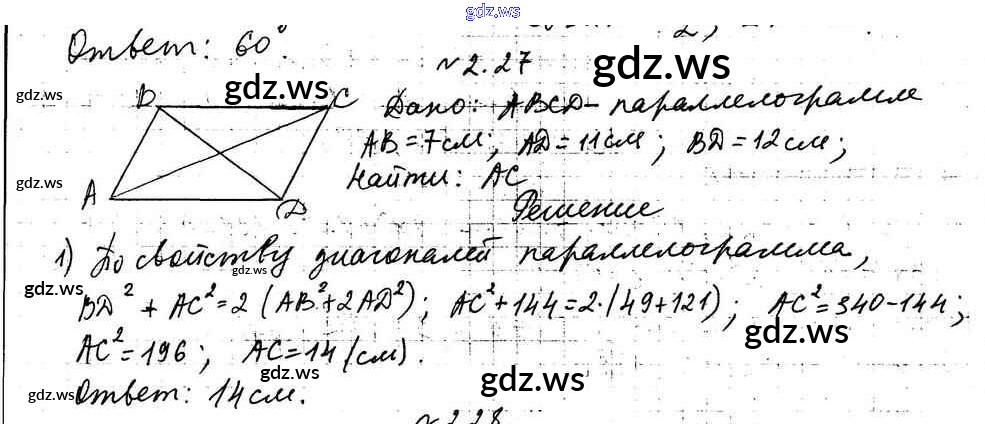 gdz.ws
Ответ: 60°.
№2.27
gdz.ws
gdz.ws
gdz.ws
B C
Дано: ABCD - параллелограмм
AB = 7 см; AD = 11 см; BD = 12 см;
gdz.ws
Найти: AC
A D
Решение
1) По свойству диагоналей параллелограмма,
gdz.ws
gdz.ws
BD² + AC² = 2 (AB² + 2AD²); AC² + 144 = 2·(49 + 121); AC² = 340 - 144;
gdz.ws
AC² = 196; AC = 14 (см).
gdz.ws
gdz.ws
gdz.ws
Ответ: 14 см.
№2.28